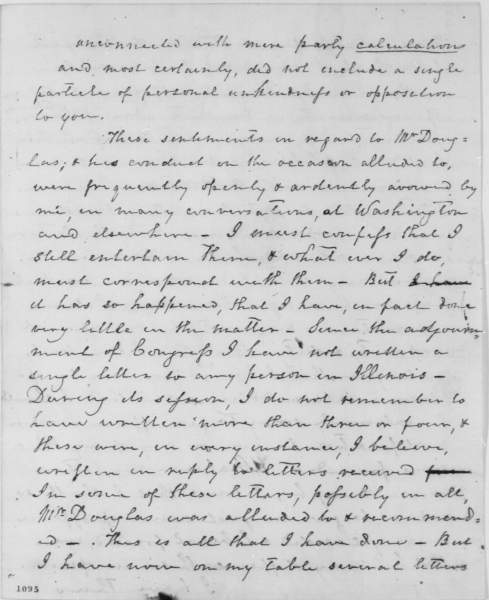 unconnected with mere party calculations
and most certainly, did not include a single
particle of personal unkindness or opposition
to you.
These sentiments in regard to Mr Doug=
las, & his conduct on the occasion alluded to,
were frequently openly & ardently avowed by
me, in many conversations, at Washington
and elsewhere - I must confess that I
still entertain them, & what ever I do,
must correspond with them - But I have
it has so happened, that I have, in fact done
very little in the matter - Since the adjourn-
ment of Congress I have not written a
single letter to any person in Illinois -
During its session, I do not remember to
have written more than three or four, &
these were, in every instance, I believe,
written in reply to letters received
In some of these letters, possibly in all,
Mr Douglas was alluded to & recommend=
ed - . This is all that I have done - But
I have now on my table several letters
1095